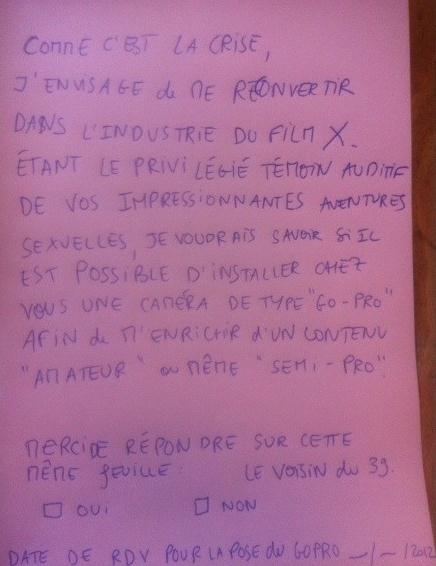 COMME C'EST LA CRISE,
J'ENVISAGE de ME RECONVERTIR
DANS L'INDUSTRIE DU FILM X.
ÉTANT LE PRIVILÉGIÉ TÉMOIN AUDITIF
DE VOS IMPRESSIONNANTES AVENTURES
SEXUELLES, JE VOUDRAIS SAVOIR SI IL
EST POSSIBLE D'INSTALLER CHEZ
VOUS UNE CAMÉRA DE TYPE "GO-PRO"
AFIN de M'ENRICHIR d'UN CONTENU
"AMATEUR" ou MÊME "SEMI-PRO".
MERCI DE RÉPONDRE SUR CETTE
MÊME feuille. LE VOISIN du 39.
□ OUI □ NON
DATE DE RDV POUR LA POSE du GOPRO _/_ /2012